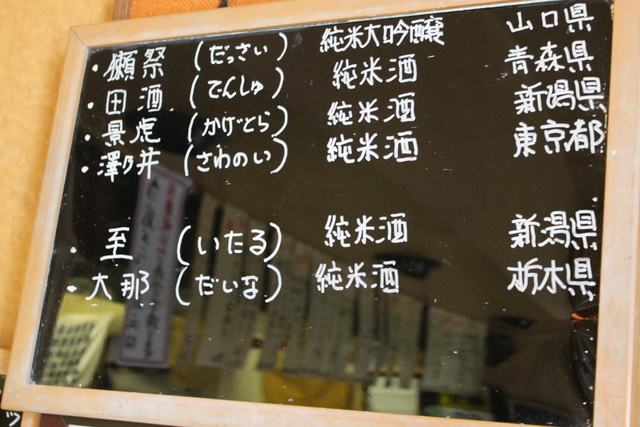 ・獺祭 (だっさい) 純米大吟醸 山口県
・田酒 (でんしゅ) 純米酒 青森県
・景虎 (かげとら) 純米酒 新潟県
・澤乃井 (さわのい) 純米酒 東京都
・至 (いたる) 純米酒 新潟県
・大那 (だいな) 純米酒 栃木県